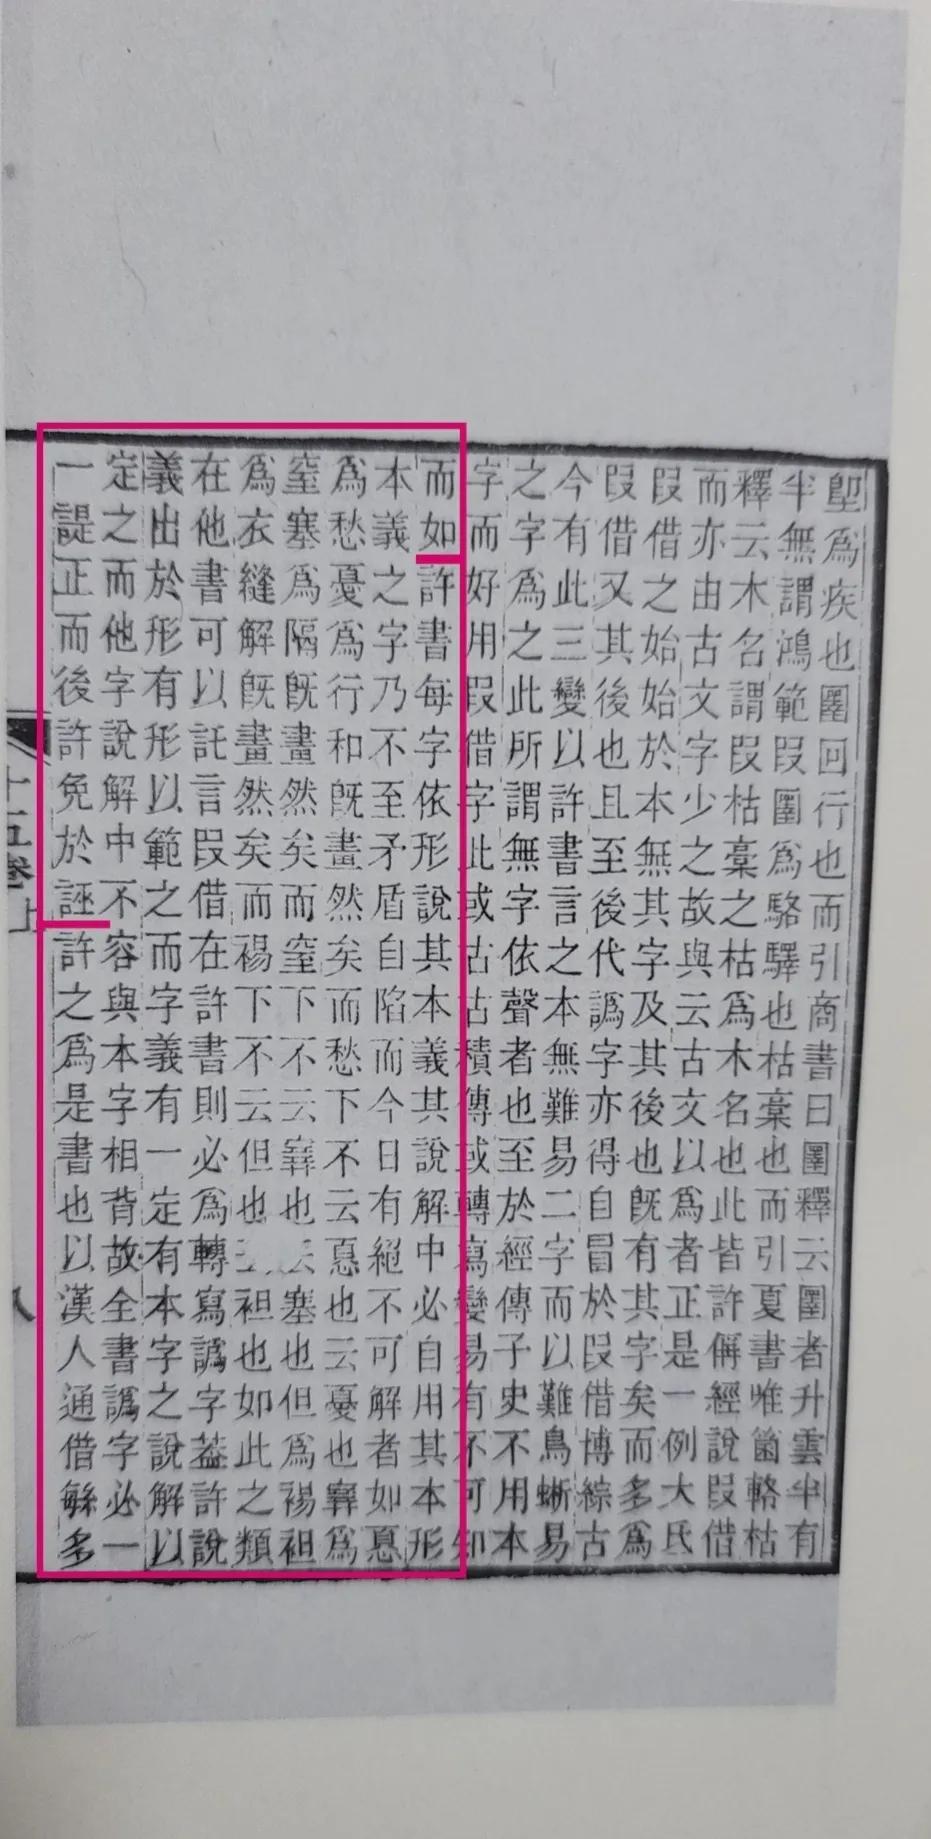 堲爲疾也圛回行也而引商書曰圛釋云圛者升雲半有
半無謂鴻範叚圛爲駱驛也枯㯱也而引夏書唯箘簵枯
釋云木名謂叚枯㯱之枯爲木名也此皆許偁經說叚借
而亦由古文字少之故與云古文以爲者正是一例大氐
叚借之始始於本無其字及其後也旣有其字矣而多爲
叚借又其後也且至後代譌字亦得自冒於叚借博綜古
今有此三變以許書言之本無難易二字而以難鳥蜥易
之字爲之此所謂無字依聲者也至於經傳子史不用本
字而好用叚借字此或古古積傳或轉寫變易有不可知
而如許書每字依形說其本義其說解中必自用其本形
本義之字乃不至矛盾自陷而今日有絕不可解者如㥑
爲愁憂爲行和旣畫然矣而愁下不云㥑也云憂也窸爲
窒塞爲隔旣畫然矣而窒下不云窸也云塞也但爲裼袒
爲衣縫解旣畫然矣而裼下不云但也云袒也如此之類
在他書可以託言叚借在許書則必爲轉寫譌字葢許說
義出於形有形以範之而字義有一定有本字之說解以
定之而他字說解中不容與本字相背故全書譌字必一
一諟正而後許免於誣許之爲是書也以漢人通借緐多
十五卷上
八